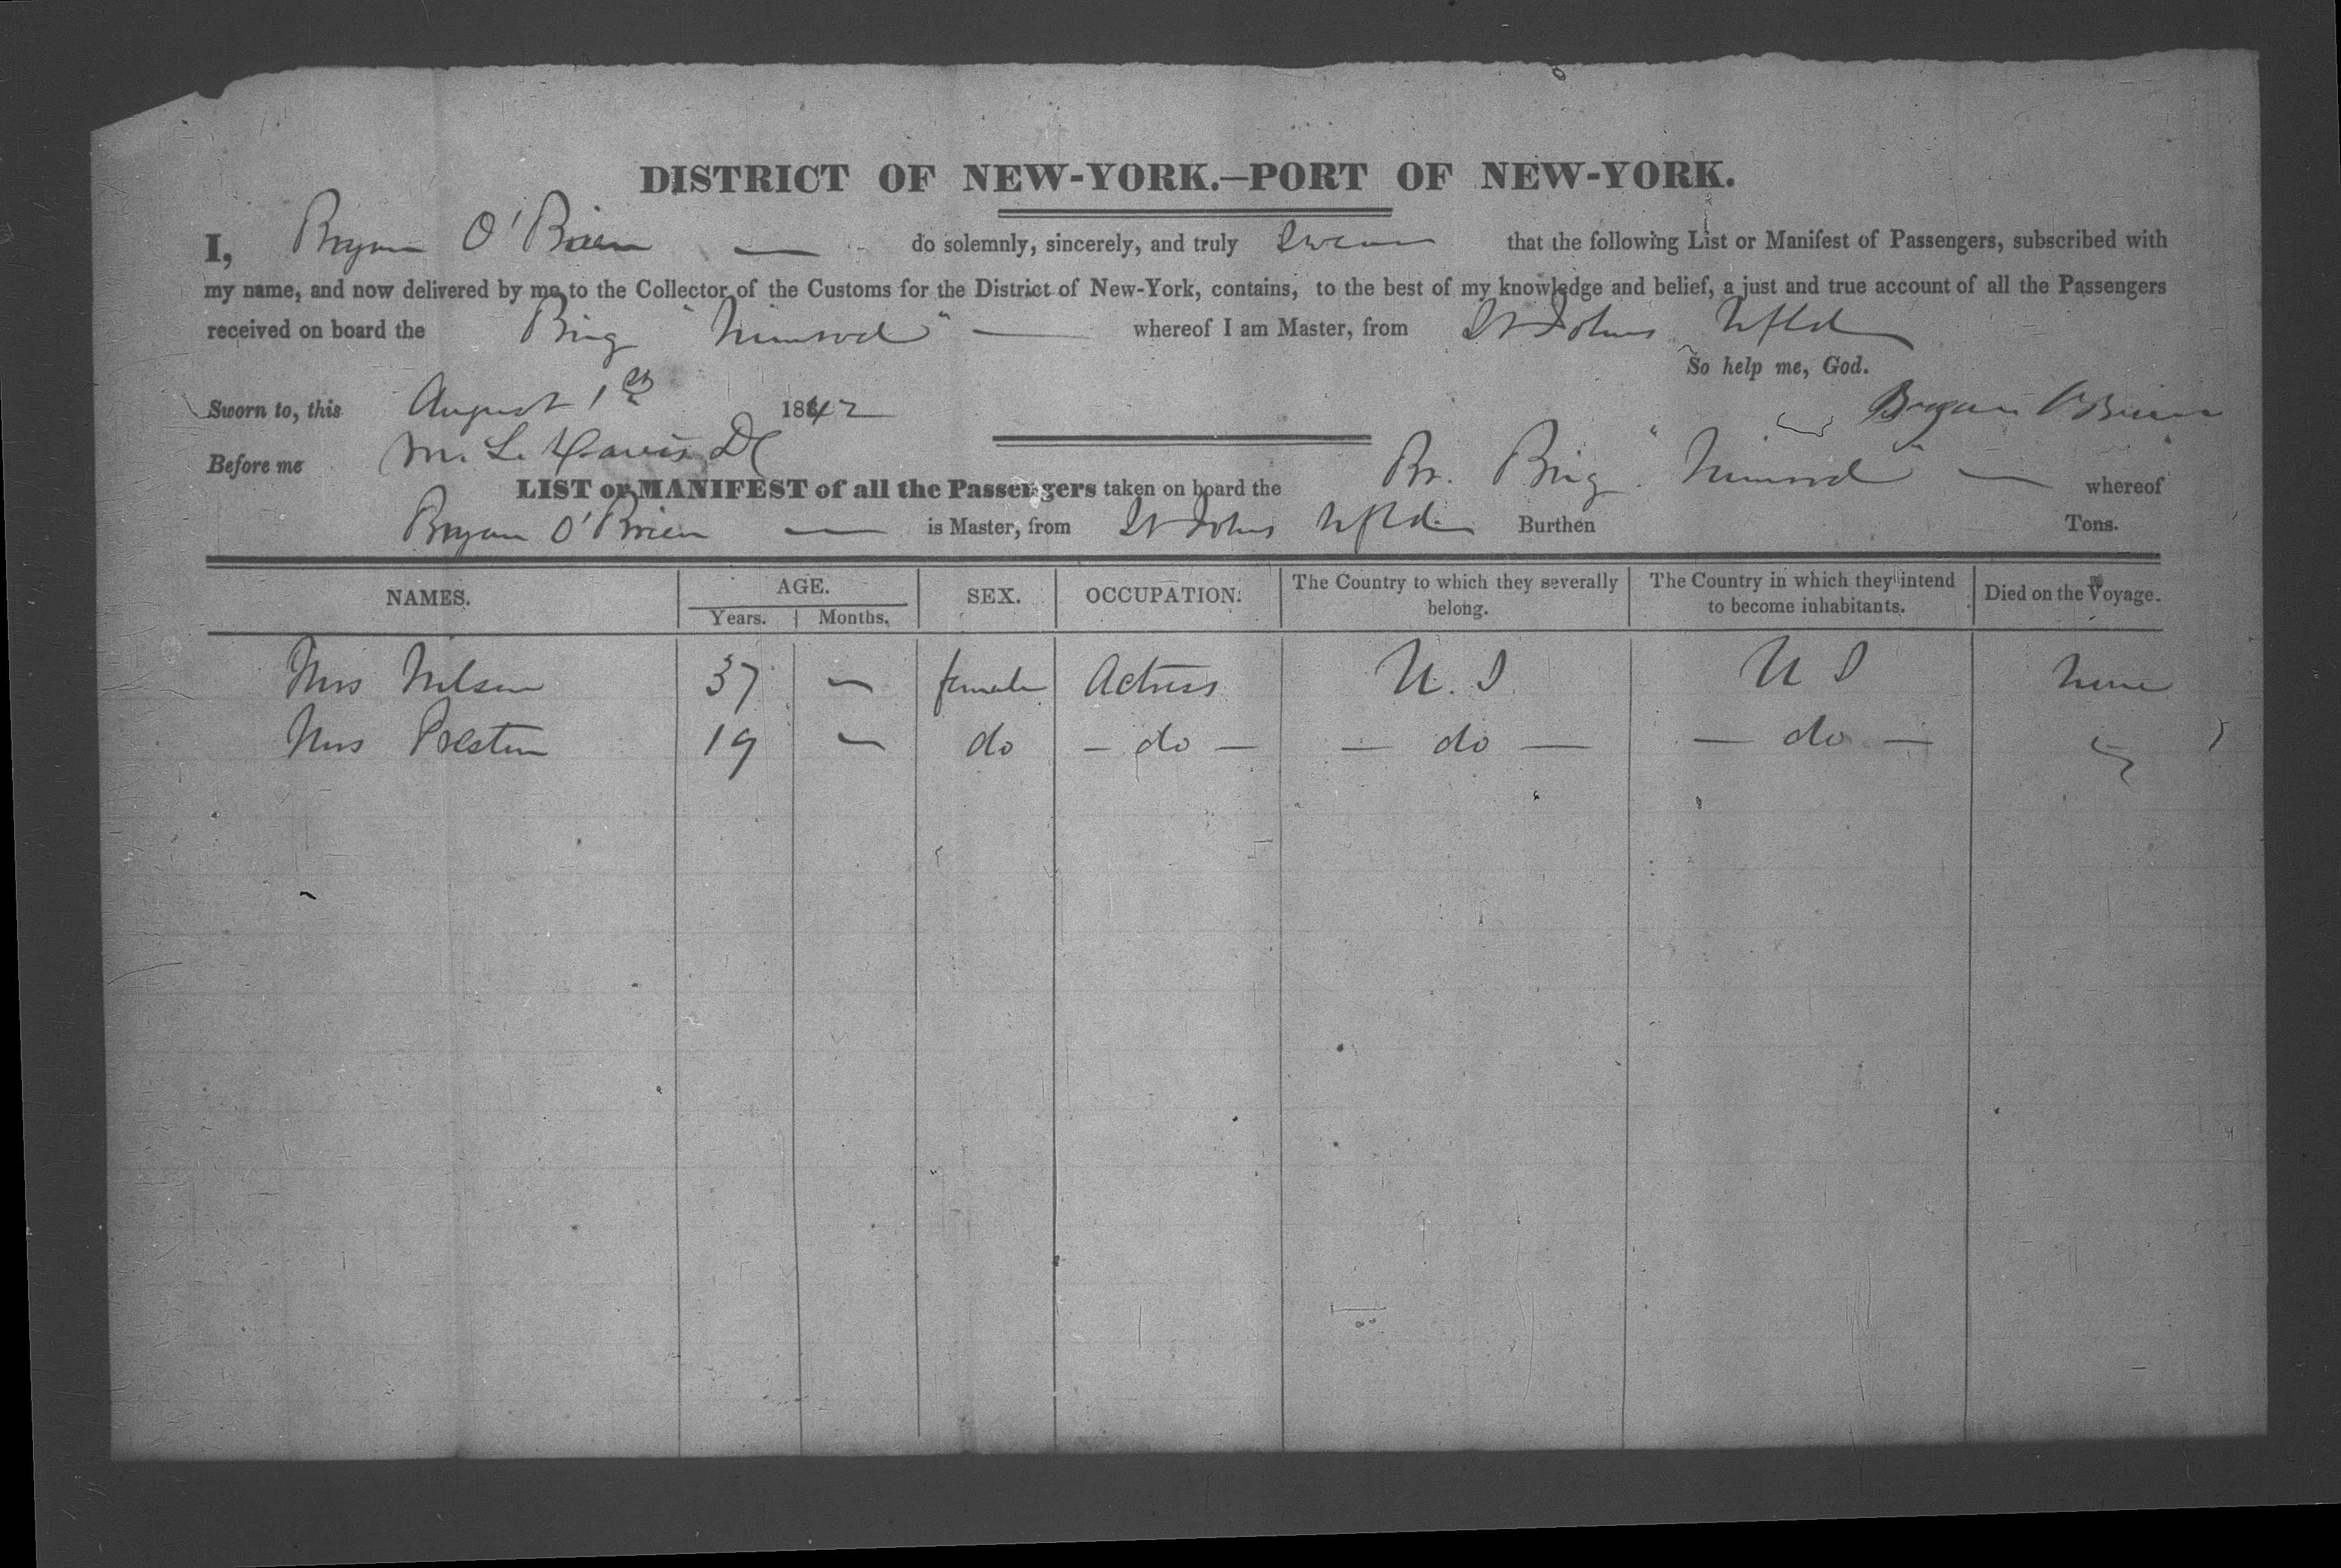 DISTRICT OF NEW-YORK.—PORT OF NEW-YORK.
I, Bryan O'Brien — do solemnly, sincerely, and truly Swear that the following List or Manifest of Passengers, subscribed with
my name, and now delivered by me to the Collector of the Customs for the District of New-York, contains, to the best of my knowledge and belief, a just and true account of all the Passengers
received on board the Brig "Nimrod" — whereof I am Master, from St Johns Nfld
So help me, God.
Sworn to, this August 1st 1842 Bryan OBrien
Before me M. L. Davis DC
LIST or MANIFEST of all the Passengers taken on board the Br. Brig "Nimrod" — whereof
Bryan O'Brien — is Master, from St Johns Nfld. Burthen Tons.
NAMES. AGE. SEX. OCCUPATION. The Country to which they severally belong. The Country in which they intend to become inhabitants. Died on the Voyage.
Years. Months.
Mrs Nelson 37 — female Actress U. S U S None
Mrs Preston 19 — do — do — — do — — do —